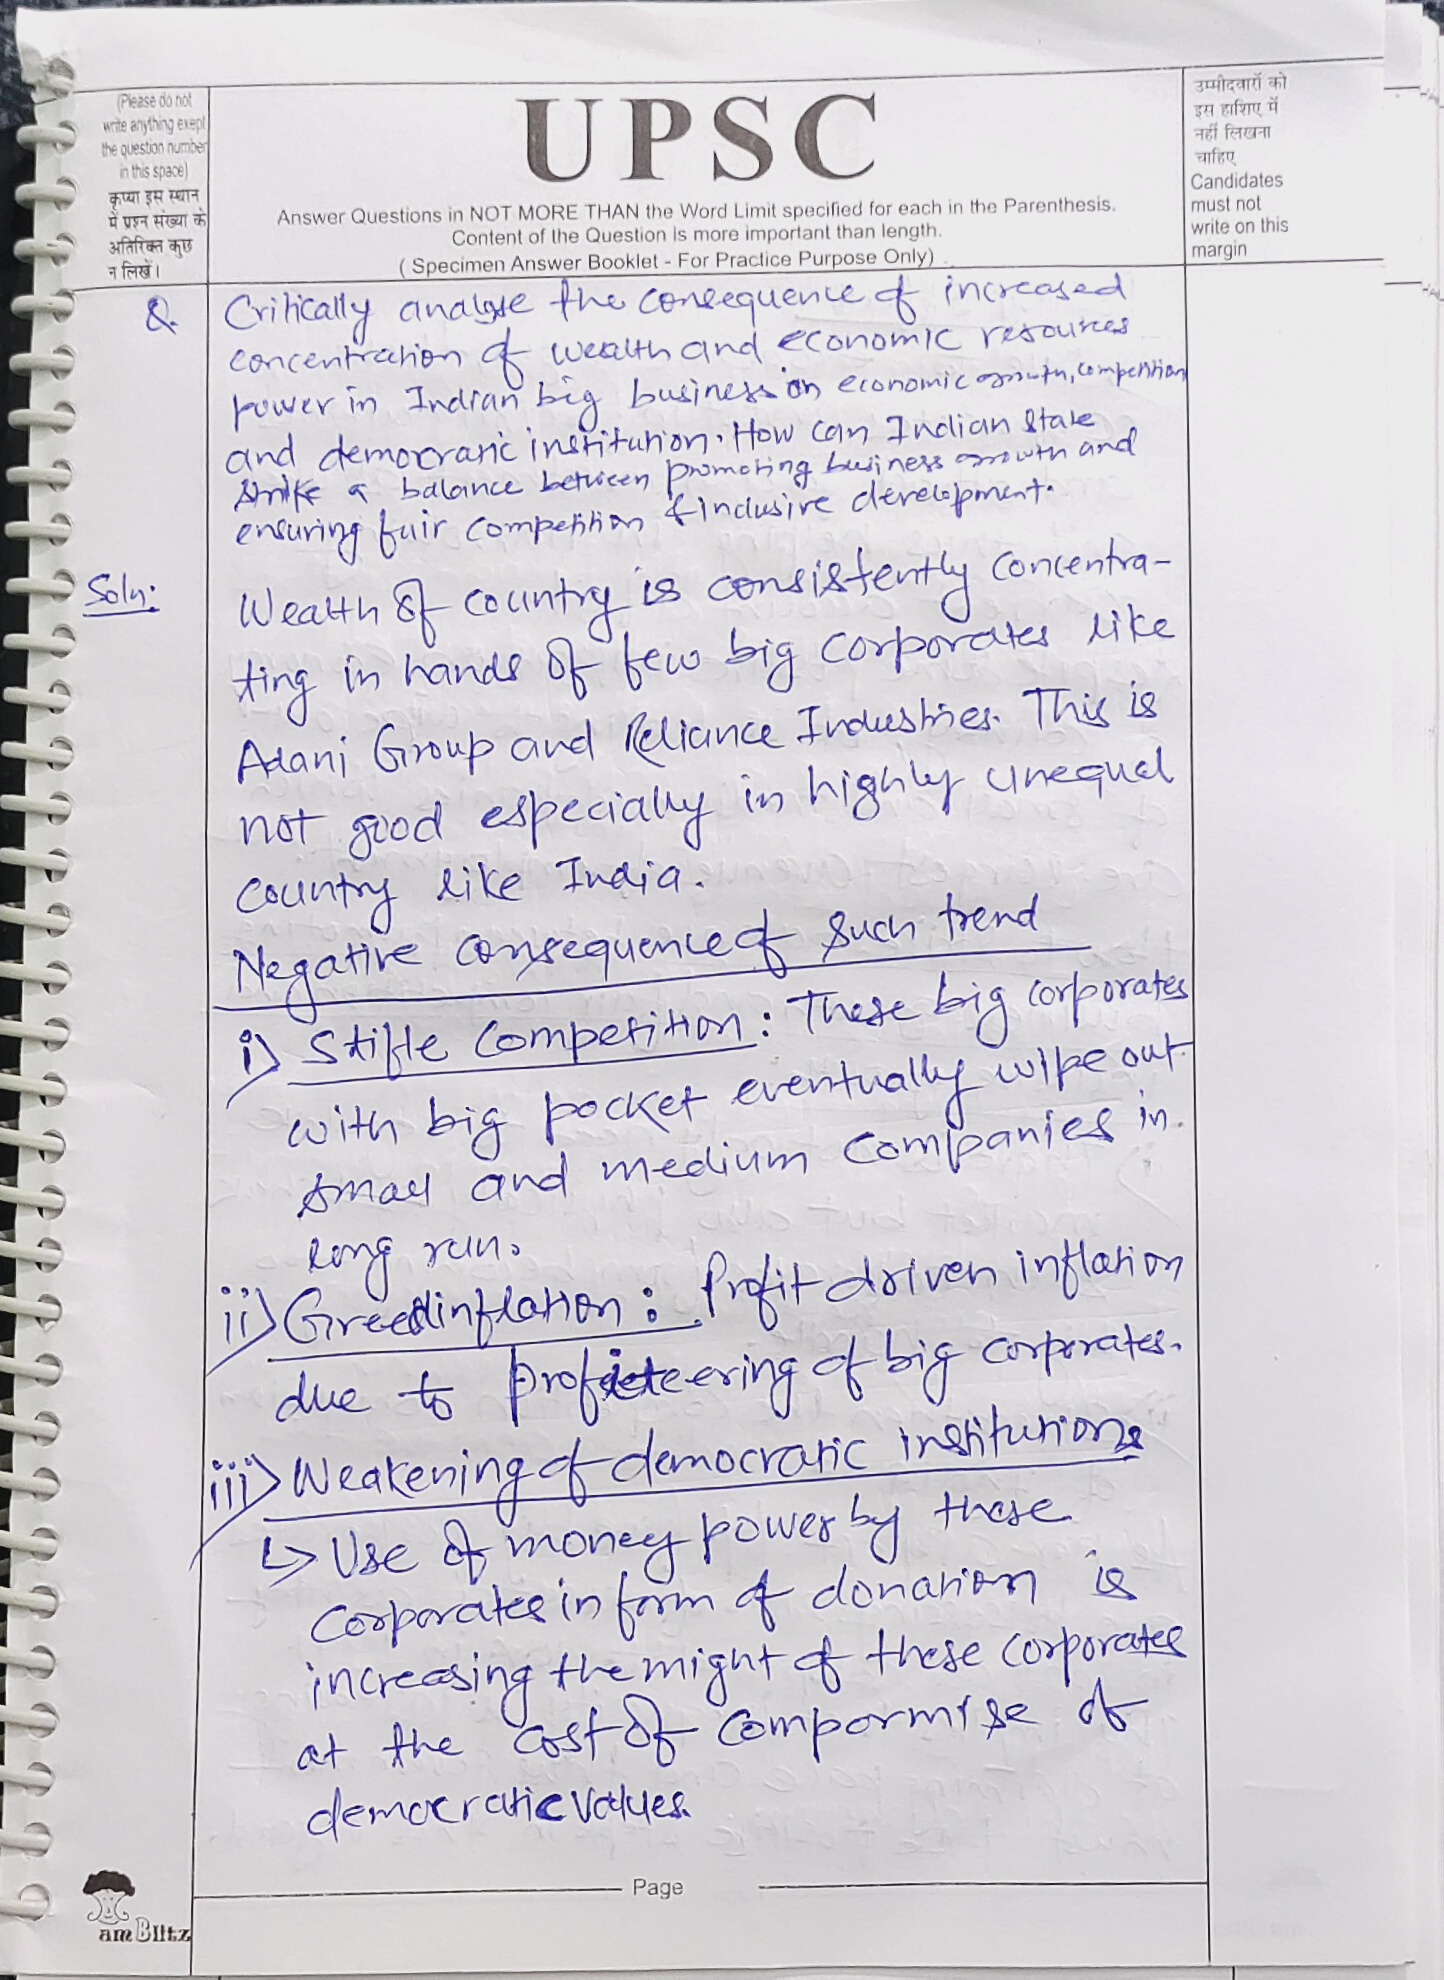 (Please do not
write anything exept
the question number
in this space)
कृप्या इस स्थान
में प्रश्न संख्या के
अतिरिक्त कुछ
न लिखें।
UPSC
Answer Questions in NOT MORE THAN the Word Limit specified for each in the Parenthesis.
Content of the Question is more important than length.
( Specimen Answer Booklet - For Practice Purpose Only)
उम्मीदवारों को
इस हाशिए में
नहीं लिखना
चाहिए
Candidates
must not
write on this
margin
Q. Critically analyse the consequence of increased
concentration of wealth and economic resources
power in Indian big business on economic growth, competition
and democratic institution. How can Indian State
strike a balance between promoting business growth and
ensuring fair competition & inclusive development.
Soln: Wealth of country is consistently concentra-
ting in hands of few big corporates like
Adani Group and Reliance Industries. This is
not good especially in highly unequal
country like India.
Negative consequence of such trend
i) Stifle Competition: These big corporates
with big pocket eventually wipe out
small and medium companies in
long run.
ii) Greedinflation: Profit driven inflation
due to profiteering of big corporates.
iii) Weakening of democratic institutions
↳ Use of money power by these
corporates in form of donation is
increasing the might of these corporates
at the cost of compormise of
democratic values.
Page
am Blitz